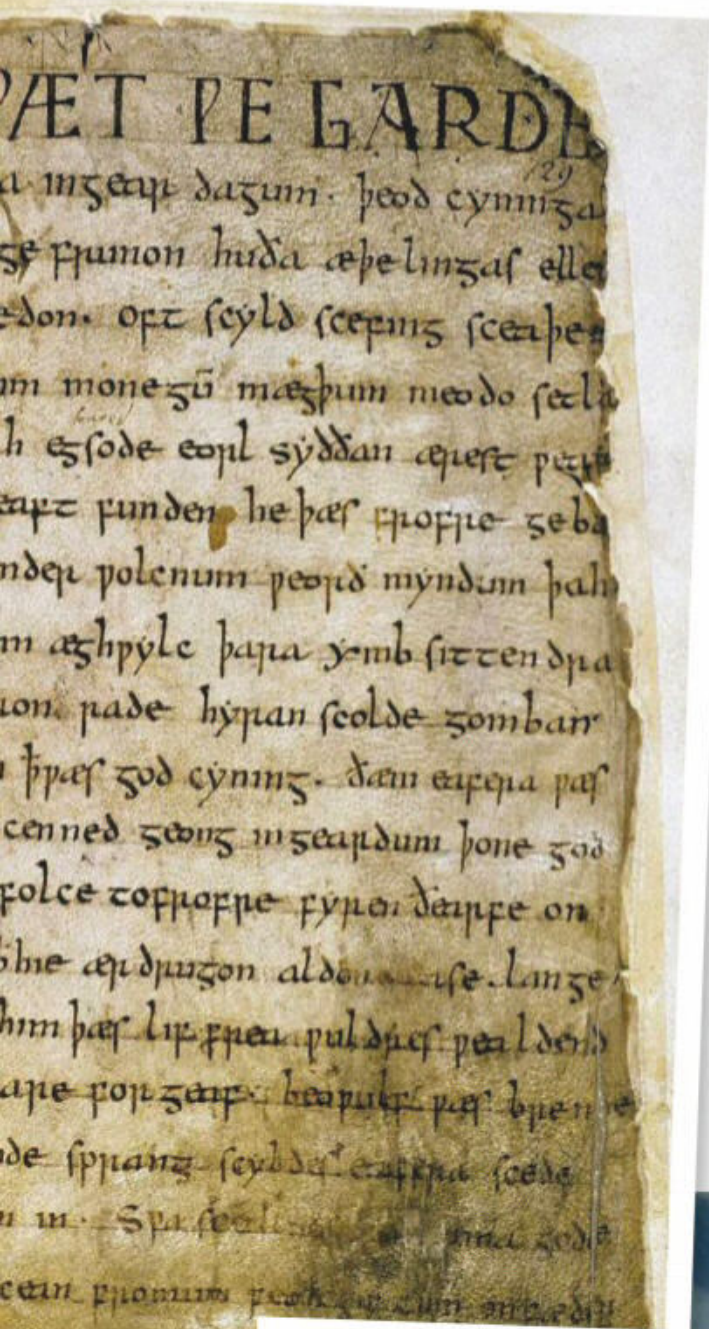 ǷÆT ǷE GARDE
129
a ingear dagum. þeod cyninga
ge frumon huða æþelingas elle
edon. oft scyld scefing sceaþe
um monegū mægþum meodo setla
h egsode eorl syððan ærest ƿear
eaft funden he þæs frofre geba
nder ƿolcnum ƿeorð myndum þah
m æghƿylc þara ymb sittendra
ron rade hyran scolde gomban
ꝥƿæs god cyning. ðæm eafera ƿæs
cenned geong ingeardum þone god
folce tofrofre fyren ðearfe on
hie ær drugon aldo ase. lange
him þæs lif frea ƿuldres ƿealdend
are for geaf. beoƿulf ƿæs breme
de sprang scyldes eafera scede
in. Sƿa sceal ma gode
cean fromum feoh giftum